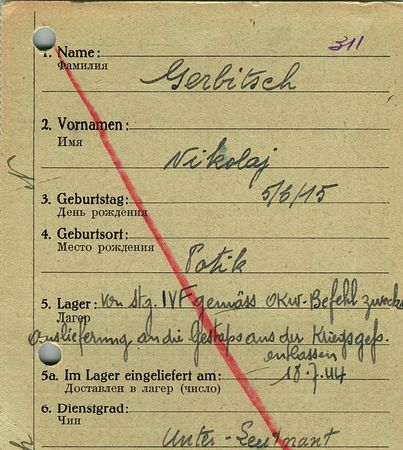 311
1. Name:
Фамилия
Gerbitsch
2. Vornamen:
Имя
Nikolaj
3. Geburtstag: 5/6/15
День рождения
4. Geburtsort:
Место рождения
Potik
5. Lager: von Stg. IVF gemäss OKW-Befehl zwecks
Лагер
Auslieferung an die Gestapo aus der Kriegsgef.
entlassen
5a. Im Lager eingeliefert am: 18.7.44
Доставлен в лагер (число)
6. Dienstgrad:
Чин
Unter-Leutnant